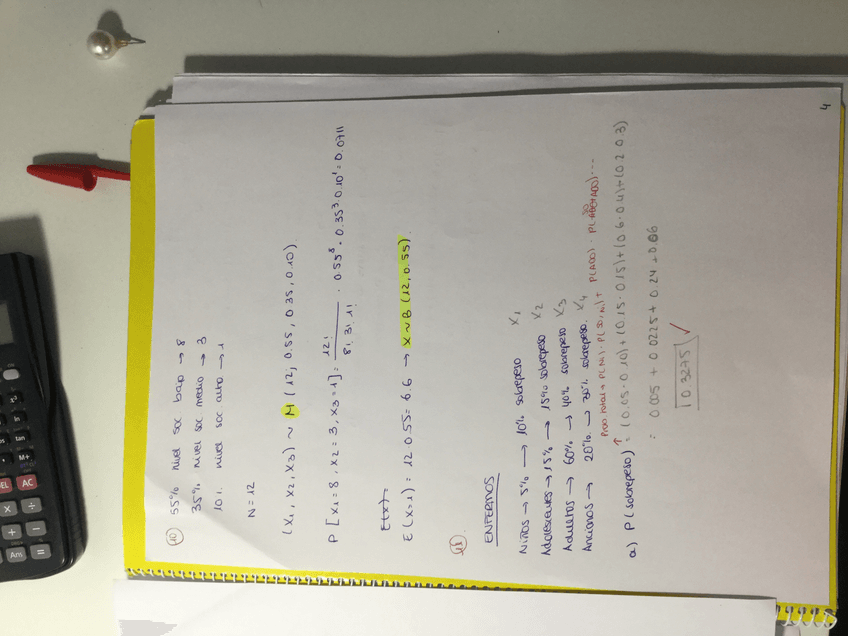 10
55% nivel soc bajo → 8
35% nivel soc medio → 3
10% nivel soc alto → 1
N = 12
(X1, X2, X3) ~ M (12, 0.55, 0.35, 0.10)
P [X1=8, X2=3, X3=1] = 12! / 8! 3! 1! · 0.55⁸ · 0.35³ · 0.10¹ = 0.0711
E(X)=
E(X1) = 12 0.55 = 6.6 → X~B (12, 0.55).
ENFERMOS
NIÑOS → 5% → 10% sobrepeso X1
Adolescentes → 15% → 15% sobrepeso X2
Adultos → 60% → 40% sobrepeso X3
Ancianos → 20% → 30% sobrepeso. X4
Prob total → P(Ni) · P(SO/Ni) + P(ADO) · P(SO/ADO)...
a) P(sobrepeso) = (0.05·0.10)+(0.15·0.15)+(0.6·0.4)+(0.2·0.3)
= 0.005 + 0.0225 + 0.24 + 0.06
0.3275 ✓
4
AC
M+
tan
ln
×
÷
+
−
Ans
=